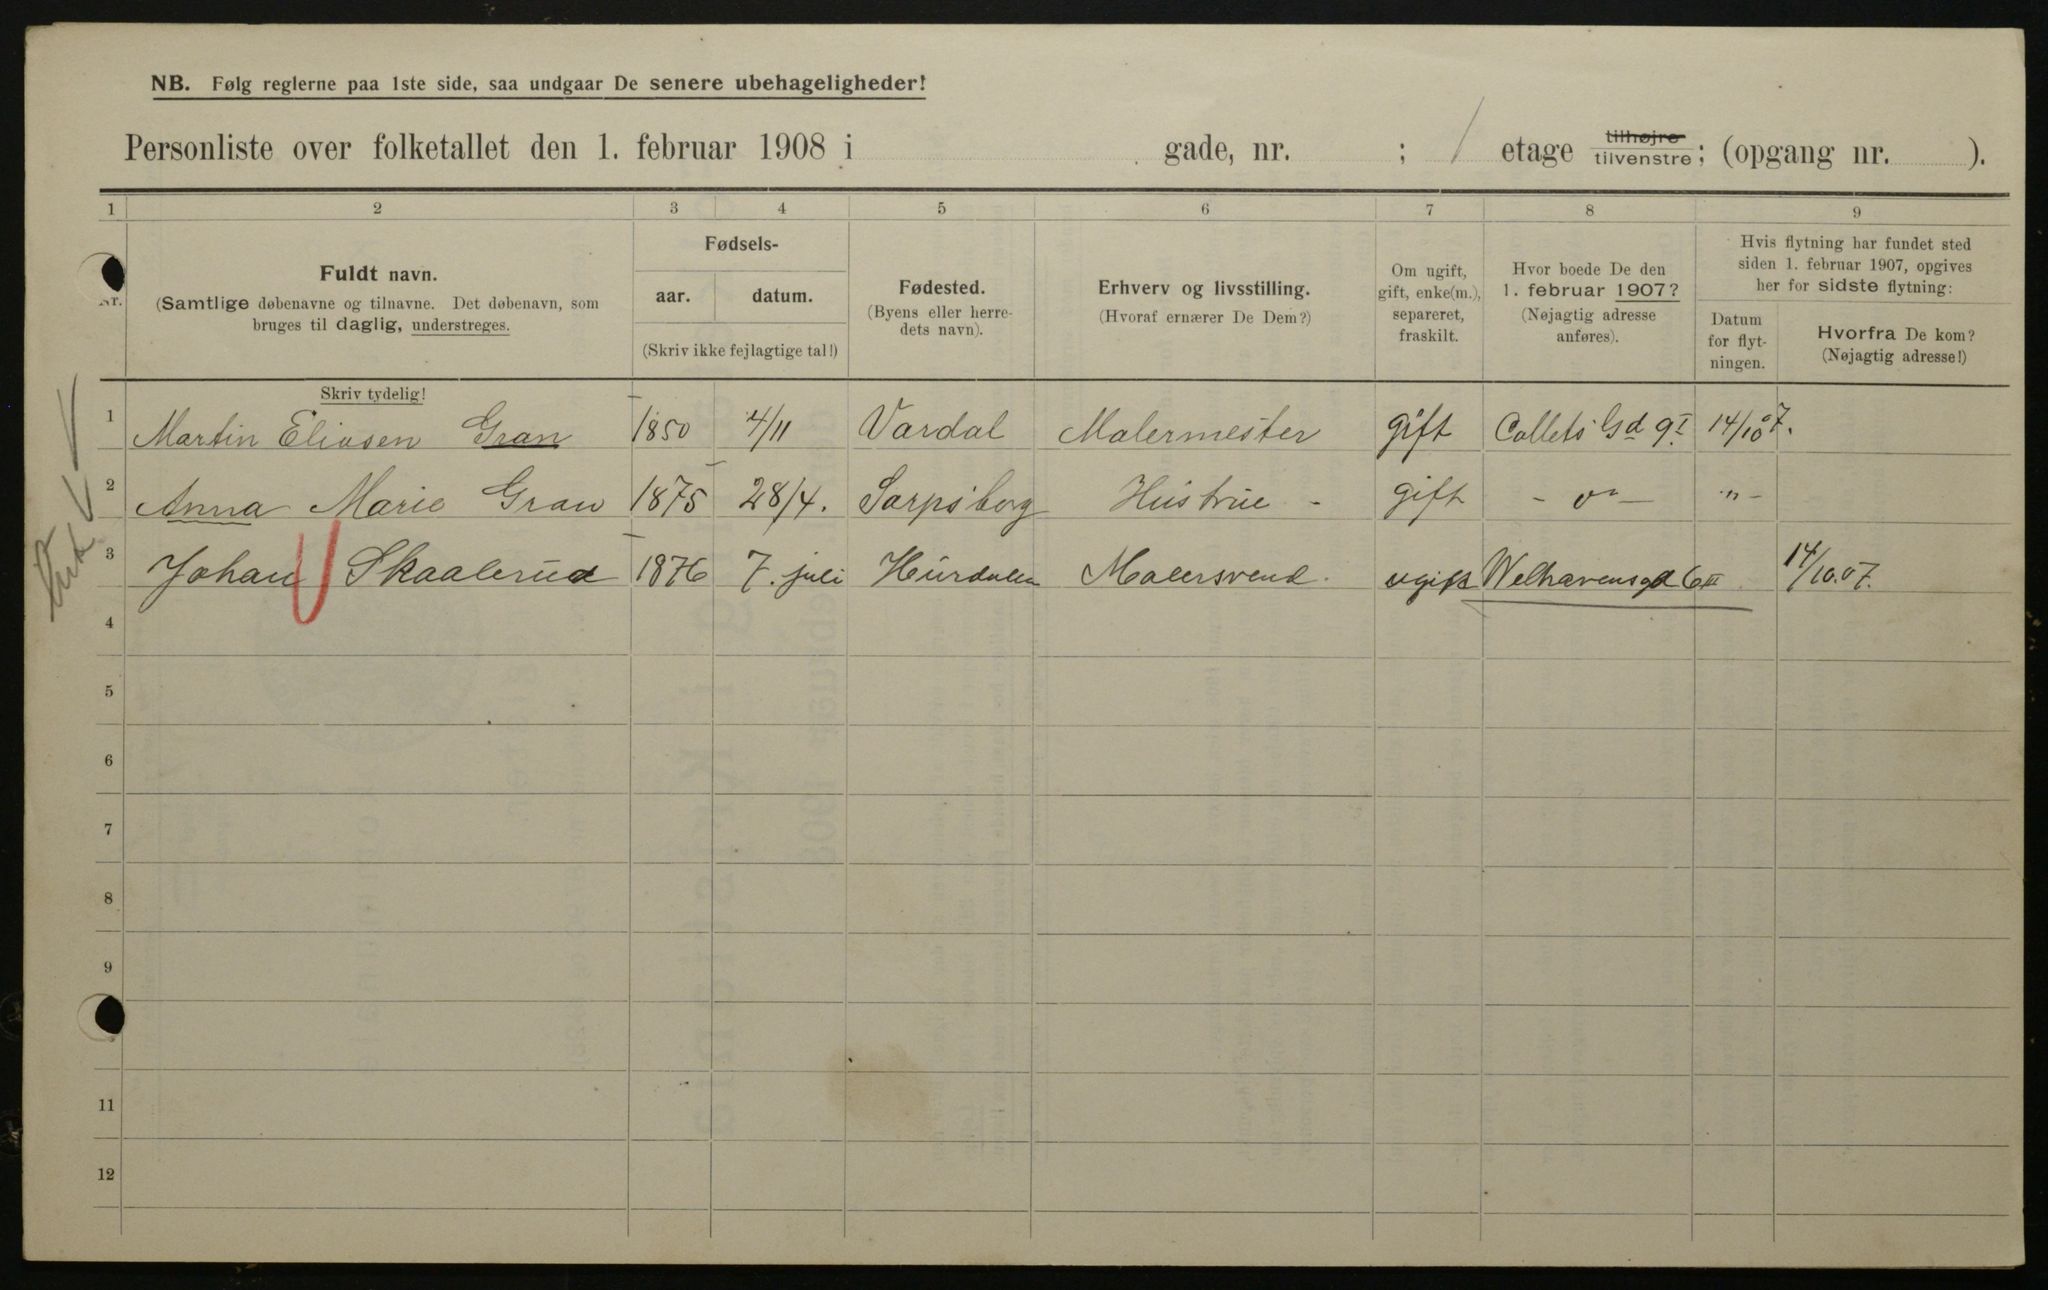 NB. Følg reglerne paa 1ste side, saa undgaar De senere ubehageligheder!
Personliste over folketallet den 1. februar 1908 i gade, nr. ; / etage tilhøjre tilvenstre; (opgang nr. ).
1 2 3 4 5 6 7 8 9
Nr.
Fuldt navn.
(Samtlige døbenavne og tilnavne. Det døbenavn, som
bruges til daglig, understreges.
Skriv tydelig!
Fødsels-
aar. datum.
(Skriv ikke fejlagtige tal!)
Fødested.
(Byens eller herre-
dets navn).
Erhverv og livsstilling.
(Hvoraf ernærer De Dem?)
Om ugift,
gift, enke(m.),
separeret,
fraskilt.
Hvor boede De den
1. februar 1907?
(Nøjagtig adresse
anføres).
Hvis flytning har fundet sted
siden 1. februar 1907, opgives
her for sidste flytning:
Datum
for flyt-
ningen.
Hvorfra De kom?
(Nøjagtig adresse!)
1 Martin Eliasen Gran 1850 4/11 Vardal Malermester gift Collets Gd 9 I 14/10 07.
2 Anna Marie Gran 1875 28/4. Sarpsborg Hustrue - gift - o - - " -
3 Johan Skaalerud 1876 7. juli Hurdalen Malersvend. ugift Welhavensgd 6 III 14/10.07.
4
5
6
7
8
9
11
12